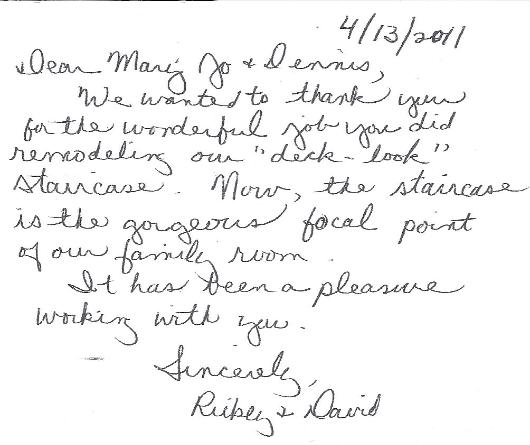 4/13/2011
Dear Mary Jo & Dennis,
We wanted to thank you
for the wonderful job you did
remodeling our "deck-look"
staircase. Now, the staircase
is the gorgeous focal point
of our family room.
It has been a pleasure
working with you.
Sincerely,
& David